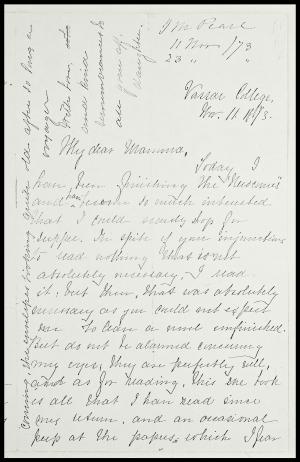 J M Pease
11 Nov /73
23 " "
Vassar College,
Nov. 11. 1873.
My dear Mamma,
Today I
have been finishing the
and so much interested
that I could scarcely stop for
supper. In spite of your injunctions
to read nothing that is not
absolutely necessary, I read
it, but then, that was absolutely
necessary as you could not expect
me to leave a novel unfinished.
But do not be alarmed concerning
my eyes, they are perfectly well,
and as for reading, this one book
is all that I have read since
my return, and an occasional
peep at the papers, which I fear
coming, the envelopes looking quite old after so long a
voyage.
With love,
and kind
remembrances to
all your aff.
daughter